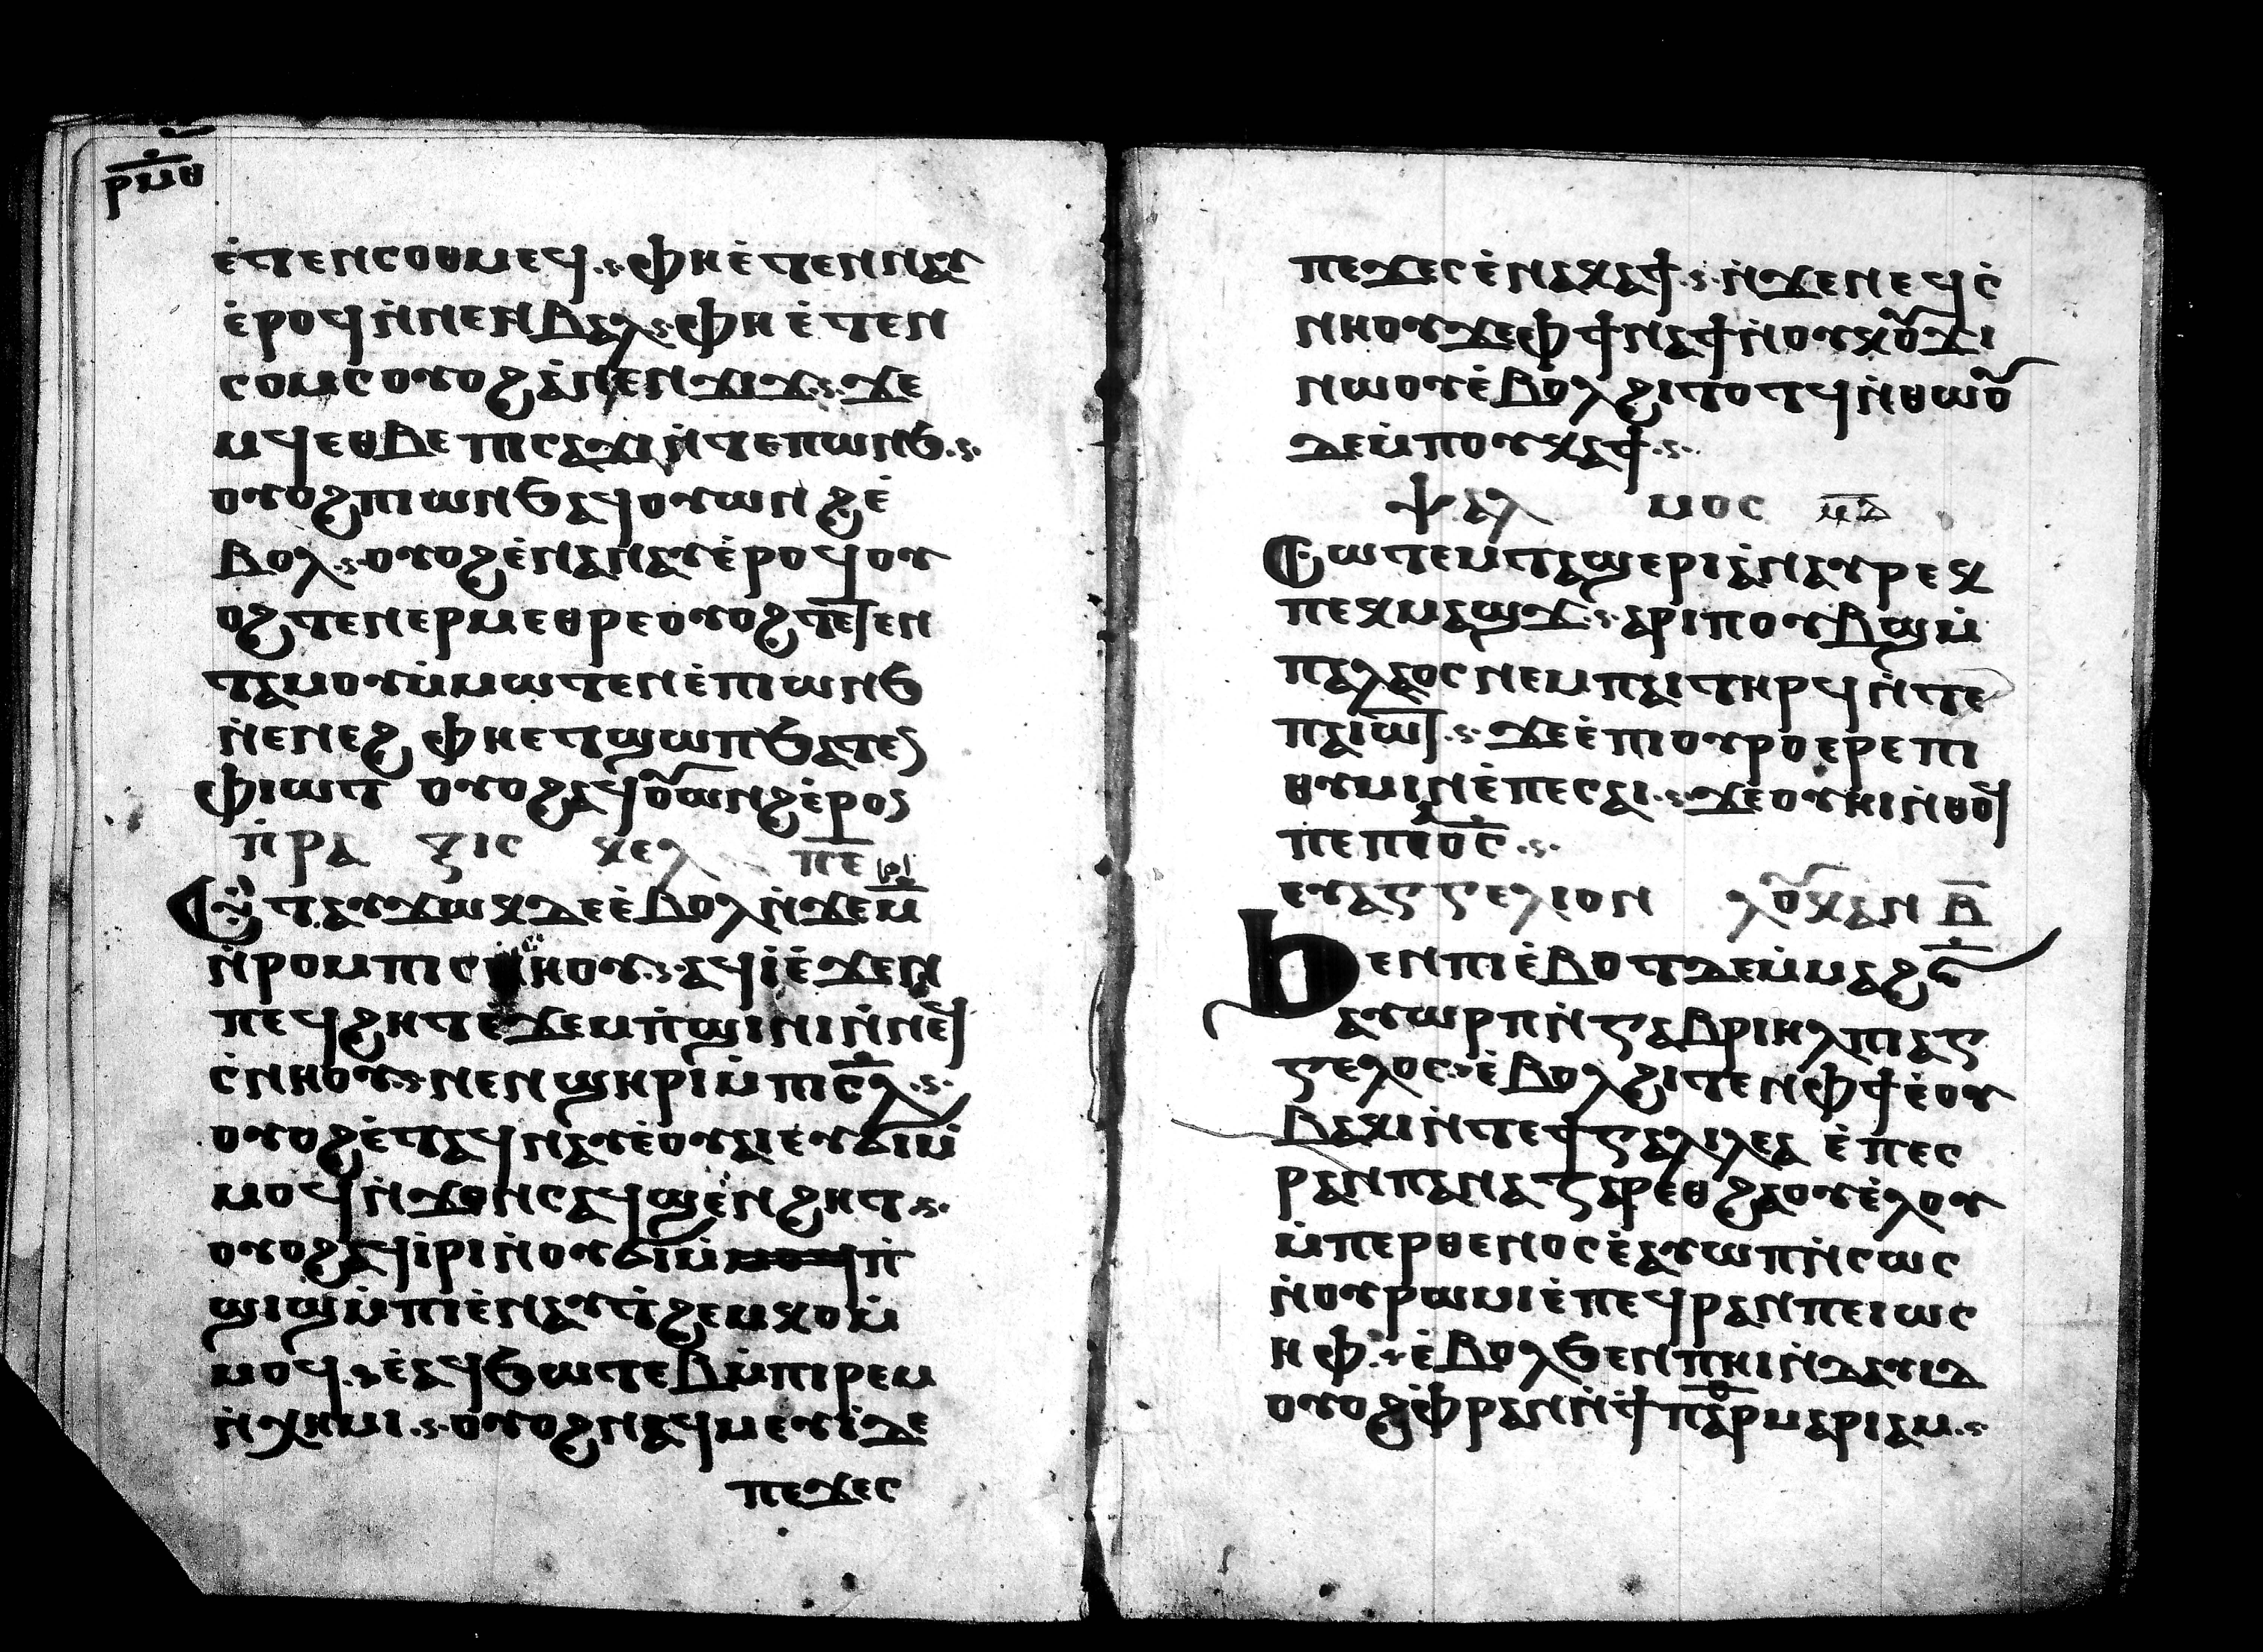 ⲣ̅ⲙ̅ⲑ̅
ⲉ̀ⲧⲉⲛⲥⲟⲑⲙⲉϥ.ⲋ ⲫⲏⲉ̀ⲧⲉⲛⲛⲁⲩ
ⲉ̀ⲣⲟϥⲛ̀ⲛⲉⲛⲃⲁⲗ.ⲋ.ⲫⲏ ⲉ̀ⲧⲉⲛ
ⲥⲟⲙⲥⲟⲩⲟϩⲁ̀ⲛⲉⲛϫⲓϫ.ⲋ.ϫⲉ
ⲙϥⲉⲑⲃⲉ ⲡⲓⲥⲁϫⲓⲛ̀ⲧⲉⲡⲱⲛϧ.ⲋ.
ⲟⲩⲟϩⲡⲓⲱⲛϧⲁϥⲟⲩⲱⲛϩⲉ̀
ⲃⲟⲗ.ⲋ.ⲟⲩⲟϩⲉ̀ⲛⲁⲛⲁⲩⲉ̀ⲣⲟϥⲟⲩ
ⲟϩⲧⲉⲛⲉⲣⲙⲉⲑⲣⲉⲟⲩⲟϩⲧⲉⲛ
ⲧⲁⲙⲟⲩⲙ̀ⲙⲱⲧⲉⲛⲉ̀ⲡⲓⲱⲛϧ
ⲛ̀ⲉⲛⲉϩ ⲫⲏⲉⲧϣⲱⲡϧⲁⲧⲉⲛ
ⲫⲓⲱⲧ ⲟⲩⲟϩⲁϥⲟⲩⲱⲛϩⲉ̀ⲣⲟⲛ
ⲡ̀ⲣⲁ ⲝⲓⲥ ⲕⲉⲗ ⲡ̅ⲉ̅
Ⲉⲧⲁⲩϫⲱⲕⲇⲉⲉ̀ⲃⲟⲗⲛ̀ϫⲉⲙ̅
ⲛ̀ⲣⲟⲙⲡⲓ ⲏⲟⲩ.ⲋ.ⲁϥⲓ̀ⲉ̀ϫⲉⲛ
ⲡⲉϥϩⲏⲧⲉ̀ϫⲉⲙⲡ̀ϣⲓⲛⲓⲛ̀ⲛⲉϥ
ⲥ̀ⲛⲏⲟⲩ.ⲋ.ⲛⲉⲛϣⲏⲣⲓⲙ̀ⲡⲓⲥ̅ⲗ.ⲋ.
ⲟⲩⲟϩⲉ̀ⲧⲁϥⲛⲁⲩⲉ̀ⲟⲩⲁⲓⲉⲩϭⲓⲙ̀
ⲙⲟϥⲛ̀ϫⲟⲛⲥⲁϥϣⲉⲛϩⲏⲧ.ⲋ.
ⲟⲩⲟϩⲁϥⲓ̀ⲣⲓⲛ̀ⲟⲩϭⲓⲙ̀ⲡ̀
ϣⲓϣⲙ̀ⲡⲓⲉ̀ⲛⲁⲩϯϩⲉⲙⲕⲟⲙ̀
ⲙⲟϥ.ⲋ ⲉ̀ⲁϥϧⲱⲧⲉⲃⲙ̀ⲡⲓⲣⲉⲙ
ⲛ̀ⲭⲏⲙⲓ.ⲋ.ⲟⲩⲟϩⲛⲁϥⲙⲉⲩⲓ̀ϫⲉ
ⲡⲉϫⲉⲥ
ⲡⲉϫⲉⲥⲉ̀ⲛⲁⲕⲁϯ.ⲋ.ⲛ̀ϫⲉⲛⲉϥⲥ̀
ⲛⲏⲟⲩϫⲉⲫϯⲛⲁϯⲛ̀ⲟⲩⲕⲟⲩϫⲓ
ⲛⲱⲟⲩⲉ̀ⲃⲟⲗϩⲓⲧⲟⲧϥⲛ̀ⲑⲱⲟⲩ
ⲇⲉⲙ̀ⲡⲟⲩⲕⲁϯ.ⲋ.
ⲯⲁⲗ ⲙⲟⲥ ⲙ̅ⲇ̅
Ⲥⲱⲧⲉⲙⲧⲁϣⲉⲣⲓⲁ̀ⲛⲁⲩⲣⲉⲕ
ⲡⲉⲕⲙⲁϣϫ.ⲋ.ⲁⲣⲓⲡⲟⲩⲃϣⲙ̀
ⲡⲁⲗⲁⲟⲥⲛⲉⲙⲡⲁⲓⲧⲏⲣϥⲛ̀ⲧⲉ
ⲡⲁⲓⲱⲧ.ⲋ.ϫⲉⲉ̀ⲡⲓⲟⲩⲣⲟⲉⲣⲉⲡⲓ
ⲑⲩⲙⲓⲛⲉ̀ⲡⲉⲥⲁⲓ.ⲋ.ϫⲉⲟⲩⲏⲓⲛ̀ⲑⲟϥ
ⲡⲉⲡⲉⲟ̅ⲥ̅.ⲋ.
ⲉⲩⲁⲅⲅⲉⲗⲓⲟⲛ ⲗⲟⲩⲕⲁⲛ ⲃ̅
Ϧⲉⲛⲡⲓⲉ̀ⲃⲟⲧⲇⲉⲙ̀ⲙⲁϩⲋ̅
ⲁⲩⲱⲣⲡⲛ̀ⲅⲁⲃⲣⲓⲏⲗⲡⲓⲁⲅ
ⲅⲉⲗⲟⲥ.ⲋ ⲉ̀ⲃⲟⲗϩⲓⲧⲉⲛⲫϯⲉ̀ⲟⲩ
ⲃⲁⲕⲓⲛ̀ⲧⲉϯⲅⲁⲗⲓⲗⲉⲁ ⲉ̀ⲡⲉⲥ
ⲣⲁⲛⲡⲁⲛⲁⲍⲁⲣⲉⲑϩⲁⲟⲩⲉ̀ⲗⲟⲩ
ⲙ̀ⲡⲉⲣⲑⲉⲛⲟⲥⲉ̀ⲁⲩⲱⲡⲛ̀ⲥⲱⲥ
ⲛ̀ⲟⲩⲣⲱⲙⲓⲉ̀ⲡⲉϥⲣⲁⲛⲡⲉⲓⲱⲥ
ⲏⲫ.ⲋ ⲉ̀ⲃⲟⲗϧⲉⲛⲡⲏⲓⲛ̀ⲇⲁⲩⲓⲇ
ⲟⲩⲟϩⲉ̀ⲫⲣⲁⲛⲛ̀ϯⲡⲁⲣⲙⲁⲣⲓⲁⲙ.ⲋ